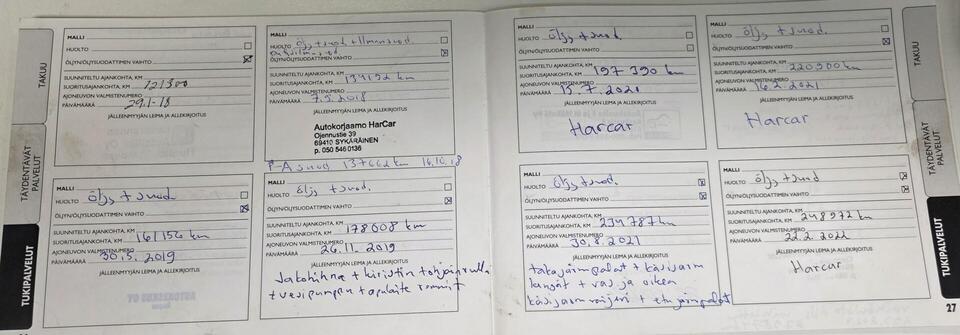 TAKUU
TÄYDENTÄVÄT
PALVELUT
TUKIPALVELUT
MALLI
HUOLTO
ÖLJYN/ÖLJYSUODATTIMEN VAIHTO
SUUNNITELTU AJANKOHTA, KM
SUORITUSAJANKOHTA, KM 121300
AJONEUVON VALMISTENUMERO
PÄIVÄMÄÄRÄ 29.1-18
JÄLLEENMYYJÄN LEIMA JA ALLEKIRJOITUS
MALLI
HUOLTO Öljy + suod. + Ilmansuod.
ÖLJYN/ÖLJYSUODATTIMEN VAIHTO
SUUNNITELTU AJANKOHTA, KM
SUORITUSAJANKOHTA, KM 134192 km
AJONEUVON VALMISTENUMERO
PÄIVÄMÄÄRÄ 7.5.2018
JÄLLEENMYYJÄN LEIMA JA ALLEKIRJOITUS
Autokorjaamo HarCar
Ojennustie 39
69410 SYKÄRÄINEN
p. 050 546 0136
P-A suod 137662 km 16.10.18
MALLI
HUOLTO öljy + suod.
ÖLJYN/ÖLJYSUODATTIMEN VAIHTO
SUUNNITELTU AJANKOHTA, KM
SUORITUSAJANKOHTA, KM 161156 km
AJONEUVON VALMISTENUMERO
PÄIVÄMÄÄRÄ 30.5.2019
JÄLLEENMYYJÄN LEIMA JA ALLEKIRJOITUS
MALLI
HUOLTO öljy + suod.
ÖLJYN/ÖLJYSUODATTIMEN VAIHTO
SUUNNITELTU AJANKOHTA, KM
SUORITUSAJANKOHTA, KM 178608 km
AJONEUVON VALMISTENUMERO
PÄIVÄMÄÄRÄ 26.11.2019
JÄLLEENMYYJÄN LEIMA JA ALLEKIRJOITUS
Jakohihna + kiristin + ohjainrulla
+ vesipumppu + apulaite
MALLI
HUOLTO öljy + suod.
ÖLJYN/ÖLJYSUODATTIMEN VAIHTO
SUUNNITELTU AJANKOHTA, KM
SUORITUSAJANKOHTA, KM 197 390 km
AJONEUVON VALMISTENUMERO
PÄIVÄMÄÄRÄ 15.7.2020
JÄLLEENMYYJÄN LEIMA JA ALLEKIRJOITUS
Harcar
MALLI
HUOLTO öljy + suod.
ÖLJYN/ÖLJYSUODATTIMEN VAIHTO
SUUNNITELTU AJANKOHTA, KM
SUORITUSAJANKOHTA, KM 220900 km
AJONEUVON VALMISTENUMERO
PÄIVÄMÄÄRÄ 16.2.2021
JÄLLEENMYYJÄN LEIMA JA ALLEKIRJOITUS
Harcar
MALLI
HUOLTO öljy + suod.
ÖLJYN/ÖLJYSUODATTIMEN VAIHTO
SUUNNITELTU AJANKOHTA, KM
SUORITUSAJANKOHTA, KM 234787 km
AJONEUVON VALMISTENUMERO
PÄIVÄMÄÄRÄ 30.8.2021
JÄLLEENMYYJÄN LEIMA JA ALLEKIRJOITUS
takajarrupalat + käsijarru
langat + vas. ja oikea
käsijarru vaijeri + etujarrupalat
MALLI
HUOLTO öljy + suod
ÖLJYN/ÖLJYSUODATTIMEN VAIHTO
SUUNNITELTU AJANKOHTA, KM
SUORITUSAJANKOHTA, KM 248972 km
AJONEUVON VALMISTENUMERO
PÄIVÄMÄÄRÄ 22.2.2022
JÄLLEENMYYJÄN LEIMA JA ALLEKIRJOITUS
Harcar
TAKUU
TÄYDENTÄVÄT
PALVELUT
TUKIPALVELUT
27